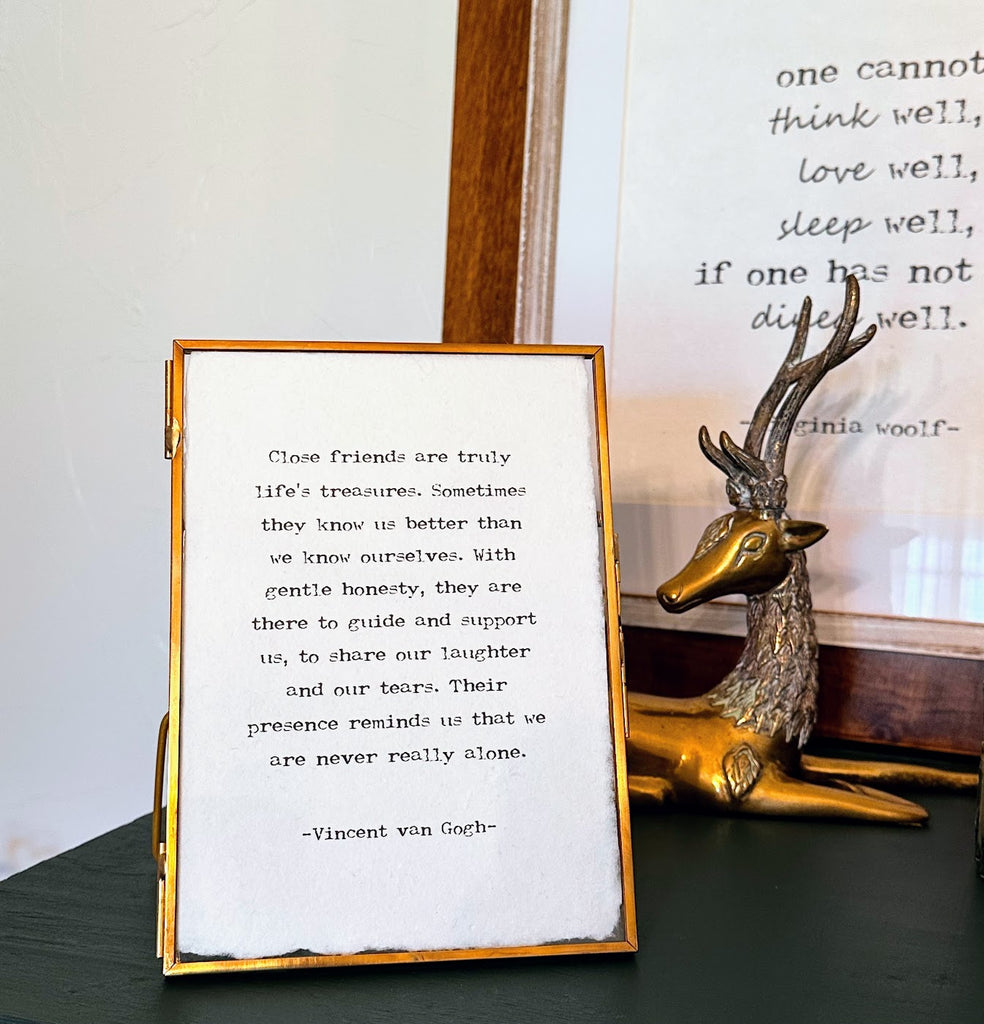 one cannot
think well,
love well,
sleep well,
if one has not
dined well.
woolf-
Close friends are truly
life's treasures. Sometimes
they know us better than
we know ourselves. With
gentle honesty, they are
there to guide and support
us, to share our laughter
and our tears. Their
presence reminds us that we
are never really alone.
-Vincent van Gogh-